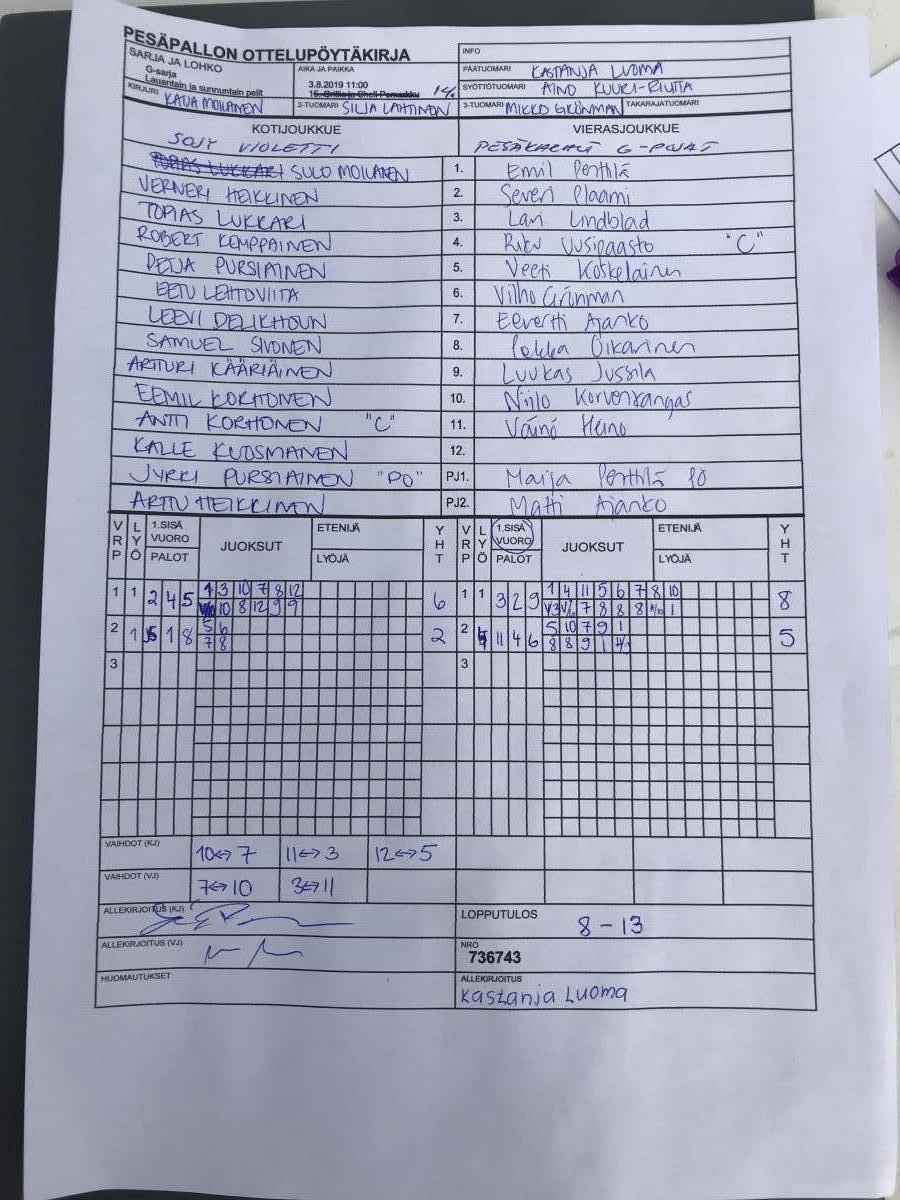 PESÄPALLON OTTELUPÖYTÄKIRJA
SARJA JA LOHKO
G-sarja
Lauantain ja sunnuntain pelit
AIKA JA PAIKKA
3.8.2019 11:00
INFO
PÄÄTUOMARI KASTANJA LUOMA
SYÖTTÖTUOMARI AINO KUUKI-RIUTTA
KIRJURI KATJA MOILANEN
2-TUOMARI SILJA LAHTINEN
3-TUOMARI MIKKO GRÖNMAN TAKARAJATUOMARI
KOTIJOUKKUE VIERASJOUKKUE
SOJY VIOLETTI G-POJAT
SULO MOILANEN 1. Emil Penttilä
VERNERI HEIKKINEN 2. Severi Plaami
TOPIAS LUKKARI 3. Lari Lindblad
ROBERT KEMPPAINEN 4. Riku Uusipaasto "C"
PEIJA PURSIAINEN 5. Veeti Koskelainen
EETU LEHTOVIITA 6. Vilho Grönman
LEEVI DELIKHOUN 7. Eevertti Ajanko
SAMUEL SIVONEN 8. Pekka Oikarinen
ARTTURI KÄÄRIÄINEN 9. Luukas Jussila
EEMIL KORHONEN 10. Niilo Korvenkangas
ANTTI KORHONEN "C" 11. Väinö Heino
KALLE KUOSMANEN 12.
JYRKI PURSIAINEN "PO" PJ1. Maija Penttilä PO
ARTTU HEIKKINEN PJ2. Matti Ajanko
VRP LYÖ 1.SISÄ VUORO PALOT JUOKSUT ETENIJÄ LYÖJÄ YHT VRP LYÖ 1.SISÄ VUORO PALOT JUOKSUT ETENIJÄ LYÖJÄ YHT
1 1 2 4 5 4 3 10 7 8 12 6 1 1 3 2 9 1 4 11 5 6 7 8 10 8
10 8 12 9 9 7 8 8 8 1
2 1 1 8 5 6 2 2 11 4 6 5 10 7 9 1 5
7 8 8 8 9 1
3 3
VAIHDOT (KJ) 10↔7 11↔3 12↔5
VAIHDOT (VJ) 7↔10 3↔11
ALLEKIRJOITUS (KJ)
LOPPUTULOS
8 - 13
ALLEKIRJOITUS (VJ)
NRO
736743
HUOMAUTUKSET
ALLEKIRJOITUS
Kastanja Luoma